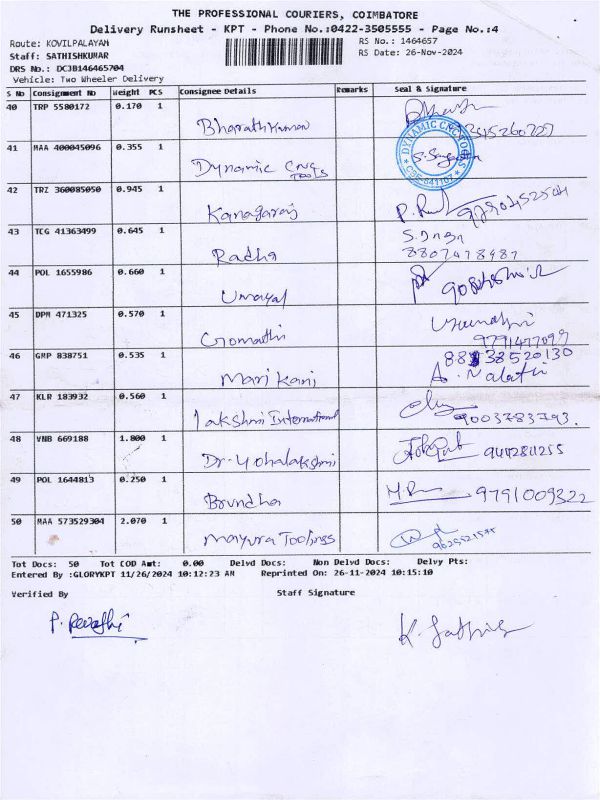 THE PROFESSIONAL COURIERS, COIMBATORE
Delivery Runsheet - KPT - Phone No.:0422-3505555 - Page No.:4
Route: KOVILPALAYAM
RS No.: 1464657
Staff: SATHISHKUMAR
RS Date: 26-Nov-2024
DRS No.: DCJB146465704
Vehicle: Two Wheeler Delivery
S No Consignment No Weight PCS Consignee Details Remarks Seal & Signature
40 TRP 5580172 0.170 1
Bharathkumar
41 MAA 400045096 0.355 1
Dynamic CNC TOOLS
DYNAMIC CNC TOOLS
42 TRZ 360085050 0.945 1
Kanagaraj
43 TCG 41363499 0.645 1
Radha
8807478487
44 POL 1655986 0.660 1
Umayal
45 DPM 471325 0.570 1
Gomathi
9791477099
46 GMP 838751 0.535 1
Mari Kani
8838520130
A. Malathi
47 KLR 183932 0.560 1
Lakshmi International
9003783793.
48 VNB 669188 1.800 1
Dr. Yohalakshmi
9442811255
49 POL 1644813 0.250 1
Brundha
9791009322
50 MAA 573529304 2.070 1
Mayura Toolings
Tot Docs: 50 Tot COD Amt: 0.00 Delvd Docs: Non Delvd Docs: Delvy Pts:
Entered By :GLORYKPT 11/26/2024 10:12:23 AM Reprinted On: 26-11-2024 10:15:10
Verified By Staff Signature
P. Revathi
K. Sathis